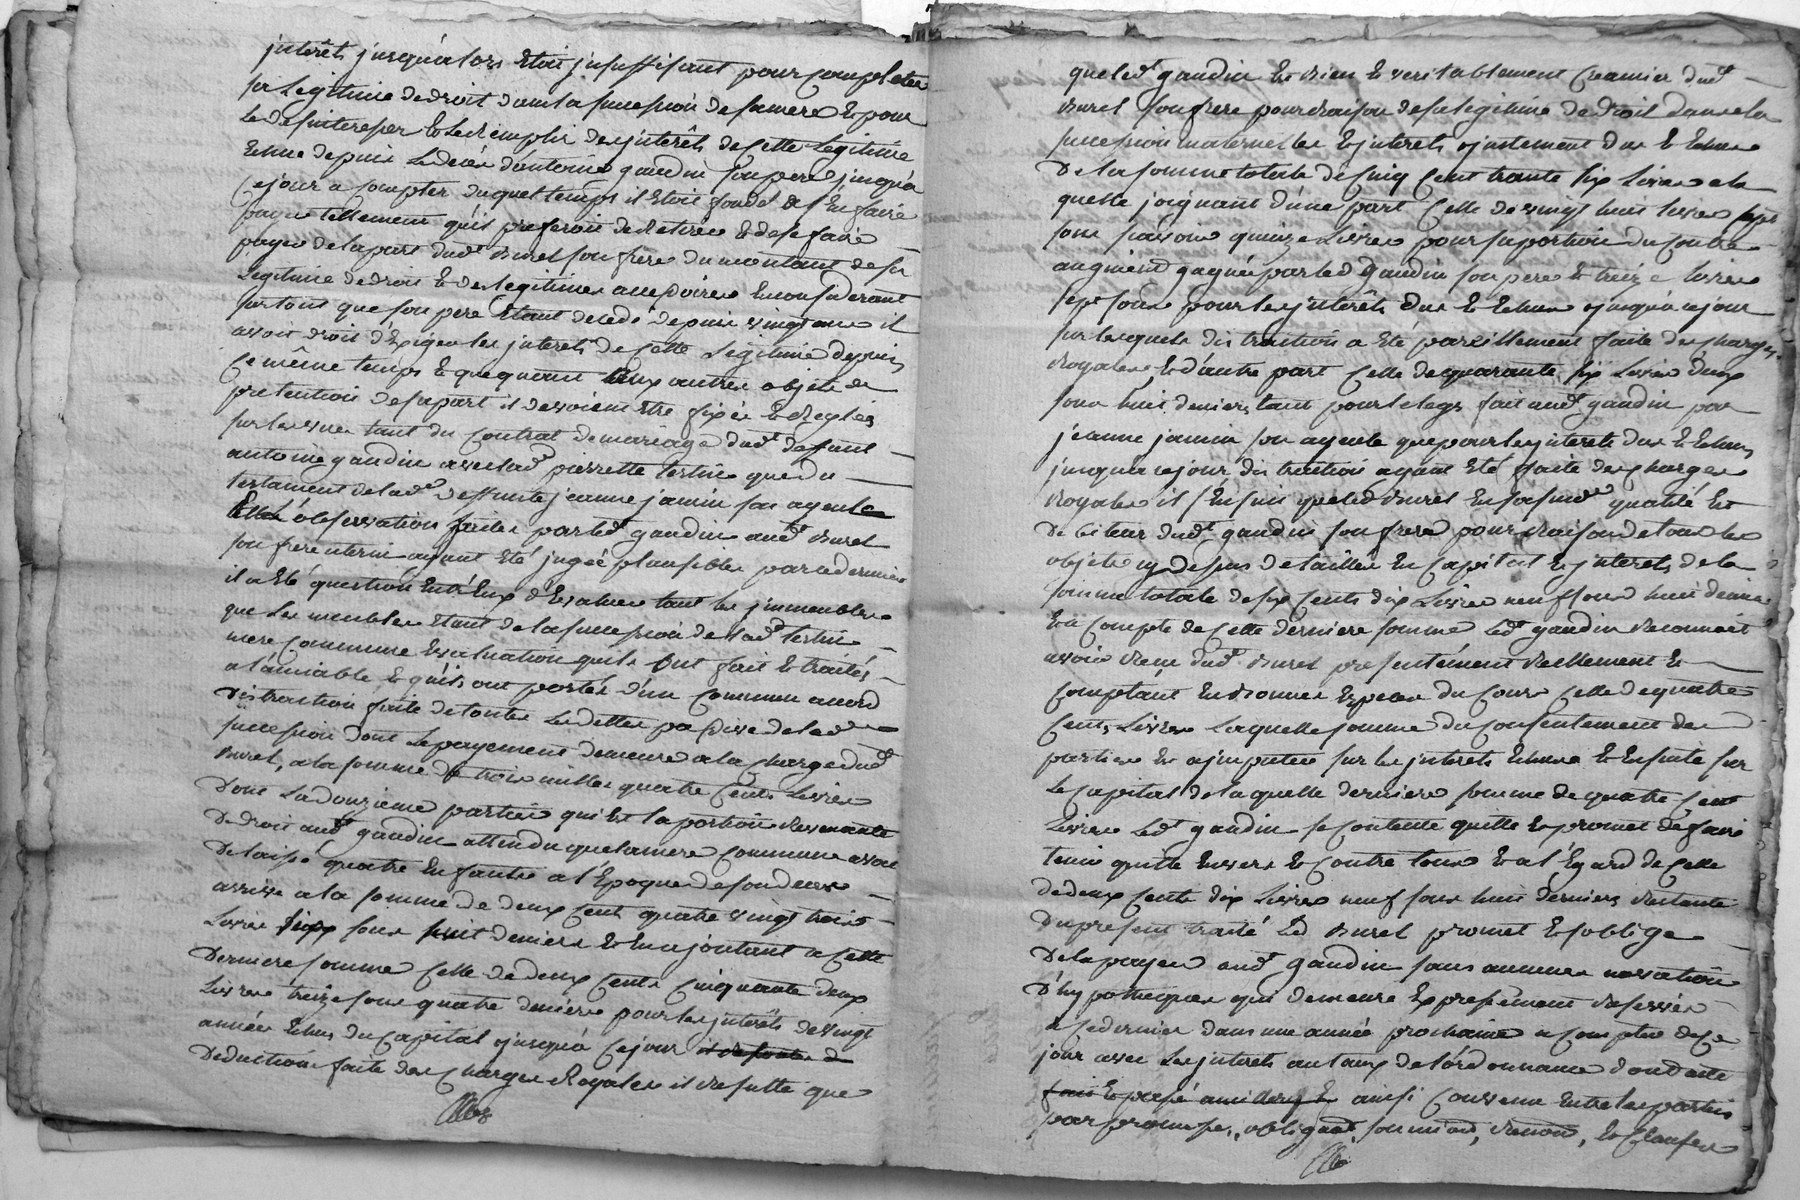 interêts jusqu'alors Etoit insuffisant pour completer
sa Legitimé de droit dans la succession de sa mere & pour
le desinteresser & le remplir des interêts de cette Legitime
Echue depuis le decés d'antoine gaudin son pere jusqu'a
ce jour a compter duquel temps il Etoit fondé a s'En faire
payer tellement qu'il preferoit de Retirer & de se faire
payer de la part dud.t Buret son frere du montant de sa
Legitime de droit & des legitimes accessoires En considerant
surtout que son pere Etant decedé depuis vingt ans il
avoit droit d'Exiger les interets de cette Legitime depuis
ce même temps & que quant aux autres objets de
pretention de sa part il devoient Etre fixés & Reglés
sur les vues tant du contrat de mariage dud.t deffunt
antoine gaudin avec lad.te pierrette Testin que du
testament de lad.te deffunte jeanne jamin son ayeule
observation faites par led.t gaudin aud.t Buret
son frere uterin ayant Eté jugéé plausibles par ce dernier
il a Eté question Entr'Eux d'Evaluer tant les immeubles
que les meubles Etant de la succession de lad.te Testin
mere commune Evaluation qu'ils ont fait & traités
a l'amiable & qu'ils ont portés d'un commun accord
Distraction faite de toutes les dettes passives de lad.te
succession dont le payement demeure a la charge dud.t
Buret, a la somme de trois milles quatre Cents Livres
Dont la douzieme partie qui Est la portion Revenante
De droit aud.t gaudin attendu que la mere commune avoit
Delaissé quatre Enfants a l'Epoque de son deces
arrive a la somme de deux Cents quatre vingt trois
Livres six sous huit deniers & En ajoutant a cette
Derniere somme celle de deux Cents Cinquante deux
Livres treize sous quatre deniers pour les interêts de vingt
années Echus du Capital jusqu'a ce jour
Deduction faite des Charges Royales il Resulte que
que led.t gaudin Est bien & veritablement Creancier dud.t
Buret son frere pour Raison de sa legitime de droit dans la
succession maternelle & interets justement dus & Echus
De la somme totale de Cinq Cent trente six Livres a la
quelle joignant d'une part Celle de vingt huit livres sept
sous sçavoir quinze Livres pour sa portion du Contre
augment gagnée par led. gaudin son pere & treize livres
sept sous pour les interêts dus & Echus jusqu'a ce jour
sur lesquels distraction a Eté pareillement faite des charges
Royales, & d'autre part Celle de quarante six Livres deux
sous huit deniers tant pour le legs fait aud.t gaudin par
jeanne jamin son ayeule que pour les interets dus & Echus
jusqu'a ce jour distraction ayant Eté faite des charges
Royales il s'Ensuit que led Buret En sa susd.te qualité Est
Debiteur dud.t gaudin son frere pour Raison de tous les
objets cy dessus detaillés En Capital & interets de la
somme totale de six Cents dix Livres neuf sous huit deniers
Et a Compte de Cette derniere somme led.t gaudin Reconnoit
avoir Recu dud.t Buret presentement Reellement &
Comptant En bonnes Especes du Cours Celle de quatre
Cents Livres Laquelle somme du Consentement des
parties Est imputée sur les interets Echus & Ensuite sur
Le Capital de laquelle derniere somme de quatre Cent
Livres Led.t gaudin se contente quitte & promet de faire
tenir quitte Envers & Contre tous & a l'Egard de Celle
de deux Cents dix Livres neuf sous huit deniers Restante
Du present traité Led Buret promet & s'oblige
De la payer aud.t gaudin sans aucune novation
D'hypotheques qui demeure Expressément Reservée
a ce dernier dans une année prochaine a Compter de ce
jour avec les interets au taux de l'ordonnance Dont acte
fait & passé ainsi Convenu Entre les parties
par promesses, obligaons, soumions, Renons, & Clauses